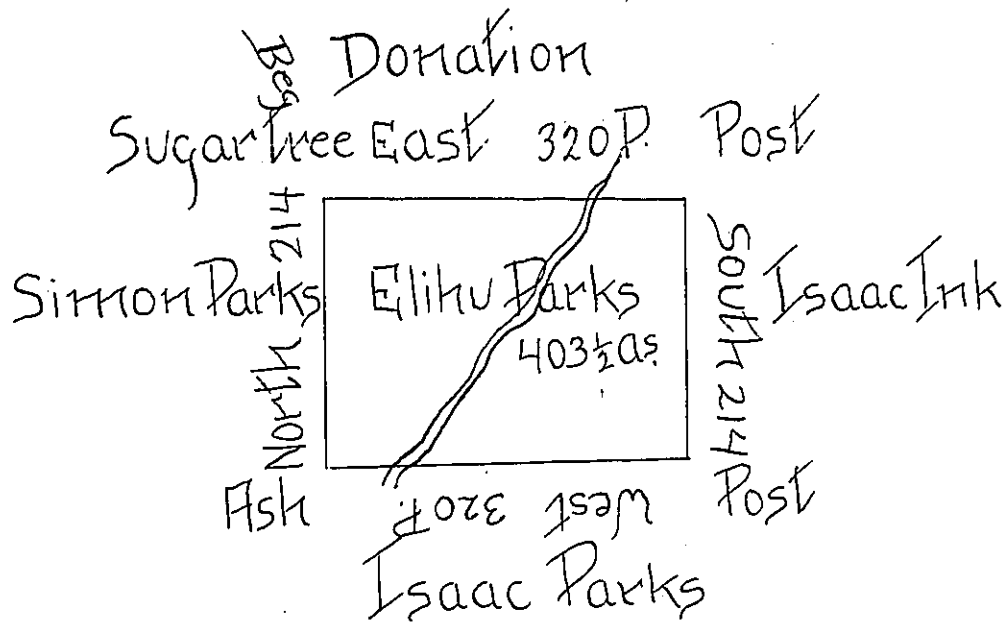 Beg
Donation
Sugartree East 320 P. Post
North 214
Simon Parks
Elihu Parks
403½ as.
South 214
Isaac Ink
Ash
West 320 P.
Post
Isaac Parks